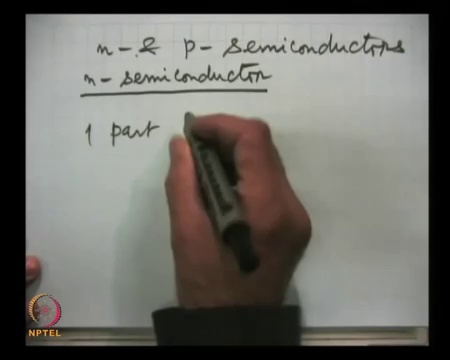 n- & p- semiconductors
n- semiconductor
1 part
NPTEL